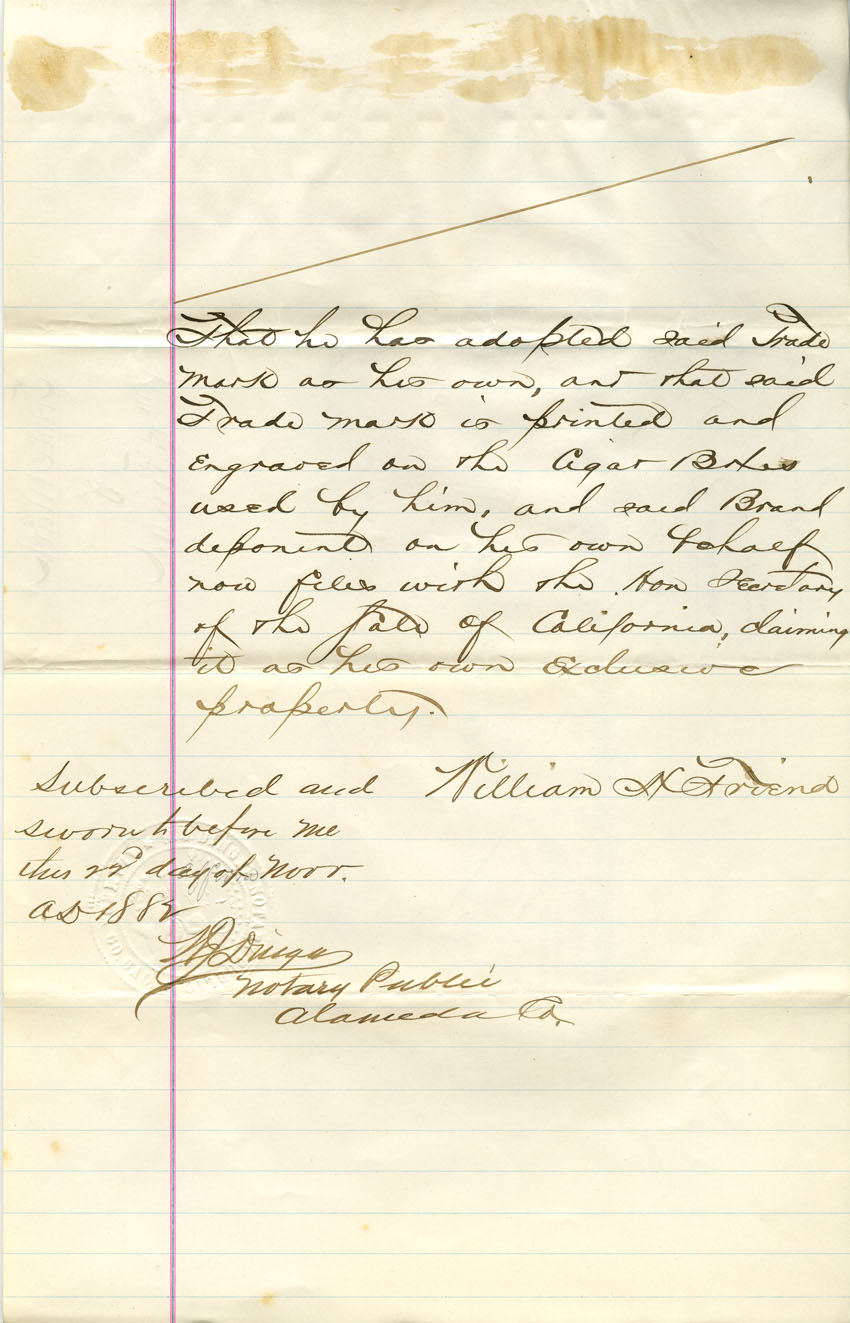 That he has adopted said Trade
mark as his own, and that said
Trade mark is printed and
Engraved on the Cigar Boxes
used by him, and said Brand
deponent on his own behalf
now files with the Hon Secretary
of the State of California, claiming
it as his own Exclusive
property.
William H Friend
Subscribed and
sworn to before me
this 22d day of Novr.
AD 1882
Notary Public
Alameda Co.